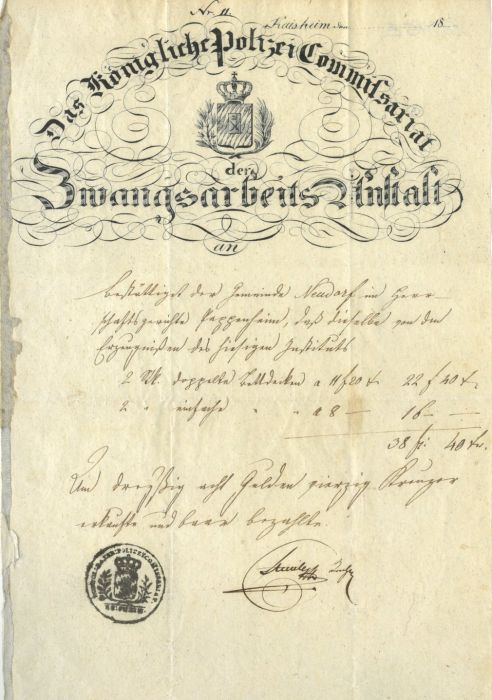 Nr. 11
Kaisheim den 18
Das Königliche Polizei Commissariat
der
Zwangsarbeits Anstalt
an
bestättiget der Gemeinde Neudorf im Herr-
schaftsgerichte Pappenheim, daß dieselbe von den
Erzeugnissen des hiesigen Instituts
2 Stk. doppelte Bettdecken a 11 f 20 x 22 f 40 x.
2 " einfache " " a 8 — 16 — —
38 fl. 40 kr.
Um dreyßig acht Gulden vierzig Kreuzer
erkaufte und baar bezahlte.